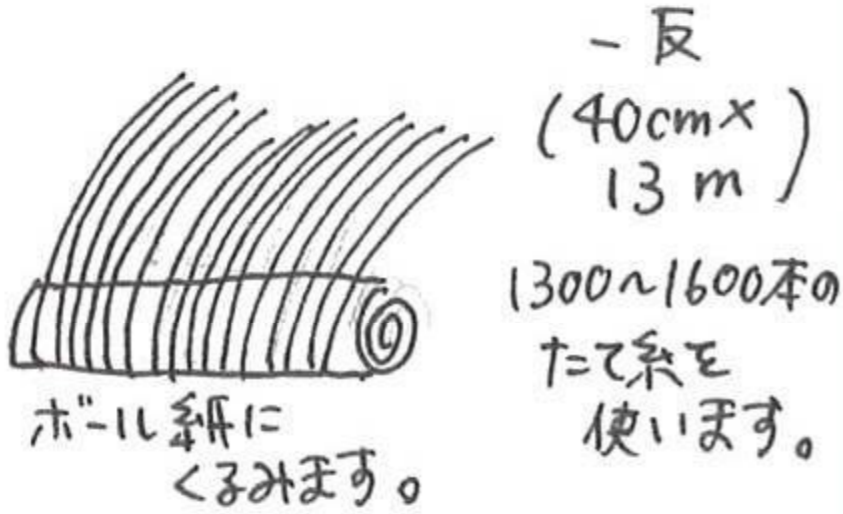 一反
(40cm×
13m)
1300～1600本の
たて糸を
使います。
ボール紙に
くるみます。